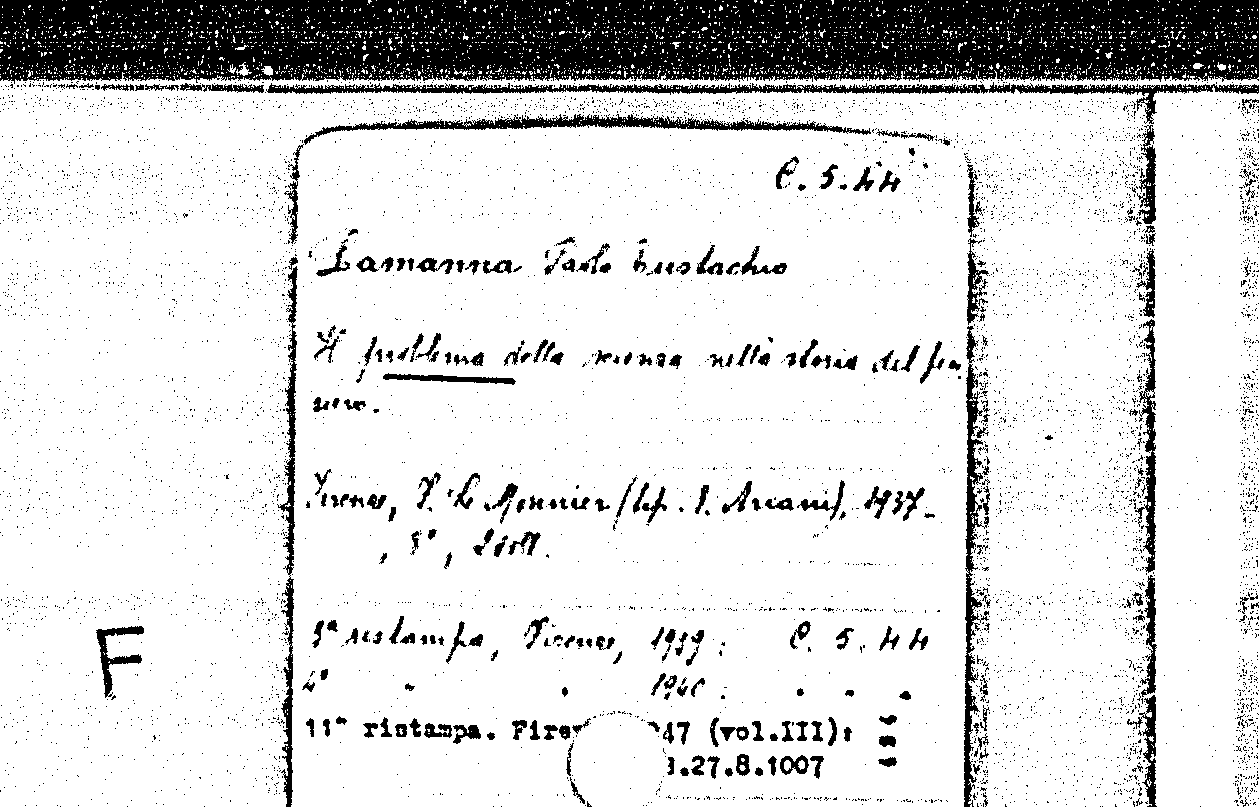 C. 5. 44
Lamanna Paolo Eustachio
Il problema della scienza nella storia del pen-
siero.
Firenze, F. Le Monnier (tip. A. Ariani), 1937-
, 8°,
3ª ristampa, Firenze, 1939: C. 5. 44
4ª " " 1940: " " "
F
11ª ristampa. Fire 947 (vol.III): " " "
.27.8.1007